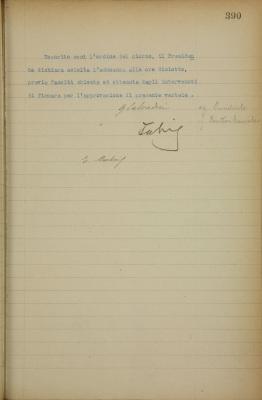 390
Esaurito così l'ordine del giorno, il Presiden
te dichiara sciolta l'adunanza alle ore diciotto,
previa facoltà chiesta ed ottenuta dagli intervenuti
di firmare per l'approvazione il presente verbale.